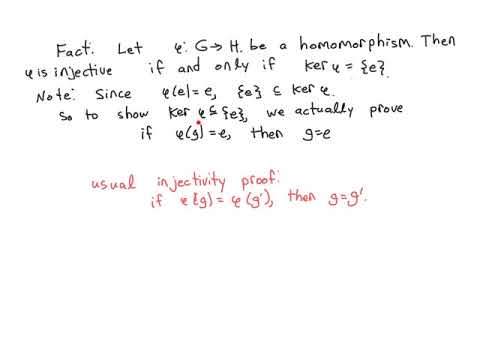 Fact. Let φ: G → H. be a homomorphism. Then
φ is injective if and only if ker φ = {e}.
Note: Since φ(e) = e, {e} ⊆ ker φ.
So to show ker φ ⊆ {e}, we actually prove
if φ(g) = e, then g=e
usual injectivity proof:
if φ(g) = φ(g'), then g=g'.